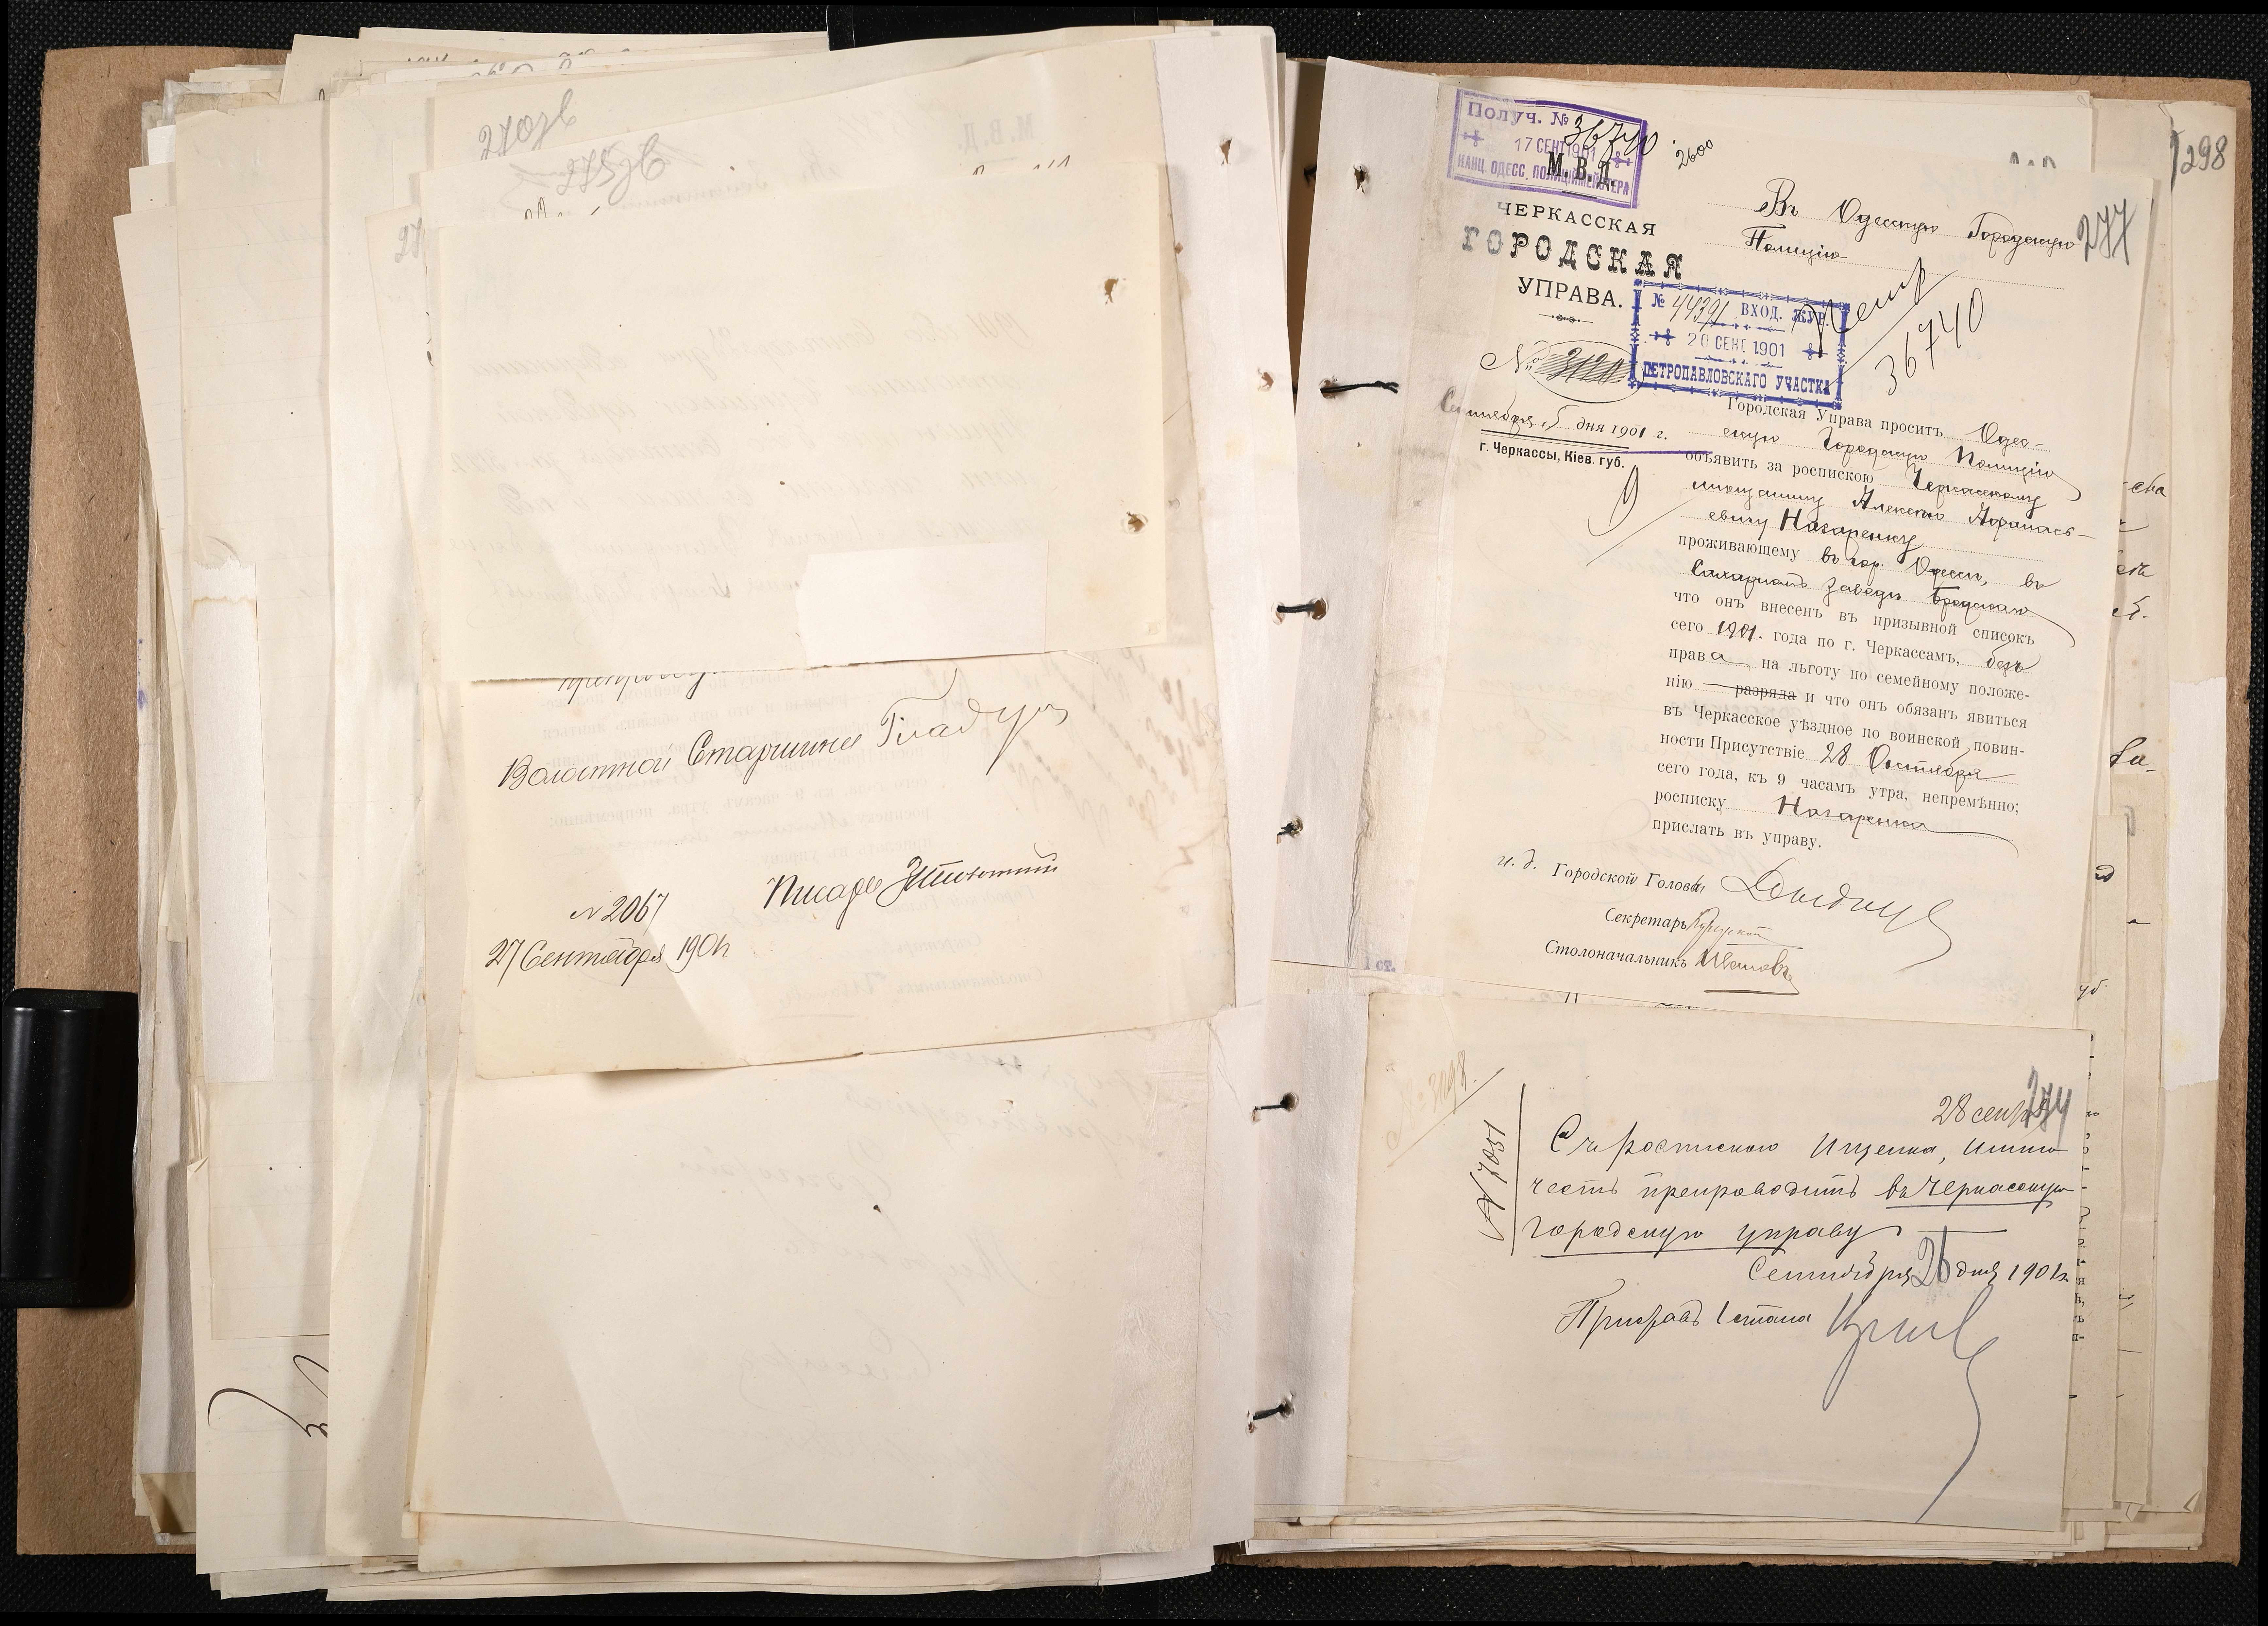 270об
275об
Волостной Старшина Гладунъ
Писарь
№ 2067
27 Сентября 1901 г.
298
277
Получ. № 36740
17 СЕНТ 1901
КАНЦ. ОДЕСС. ПОЛИЦІЙМЕЙСТЕРА
2600
М. В. Д.
ЧЕРКАССКАЯ
ГОРОДСКАЯ
УПРАВА.
№ 3120
Сентября 5 дня 1901 г.
г. Черкассы, Кіев. губ.
Въ Одесскую Городскую
Полицію
Петр
36740
№ 44391 ВХОД. ЖУР.
20 СЕНТ 1901
ПЕТРОПАВЛОВСКАГО УЧАСТКА
Городская Управа проситъ Одес-
скую Городскую Полицію
объявить за роспискою Черкасскому
мѣщанину Алексѣю Афанась-
евичу Назаренку
проживающему въ гор. Одессѣ, въ
Сахарномъ заводѣ Бродскаго
что онъ внесенъ въ призывной списокъ
сего 1901. года по г. Черкассамъ, безъ
права на льготу по семейному положе-
нію разряда и что онъ обязанъ явиться
въ Черкасское уѣздное по воинской повин-
ности Присутствіе 28 Октября
сего года, къ 9 часамъ утра, непремѣнно;
росписку Назаренка
прислать въ управу.
и. д. Городской Головы
Секретарь
Столоначальникъ Ивановъ
1 ст.
№ 3098.
274
28 сент
№ 7051
Съ роспискою Ищенка, имѣю
честь препроводить въ Черкасскую
городскую управу
Сентября 26 дня 1901 г.
Приставъ 1 стана